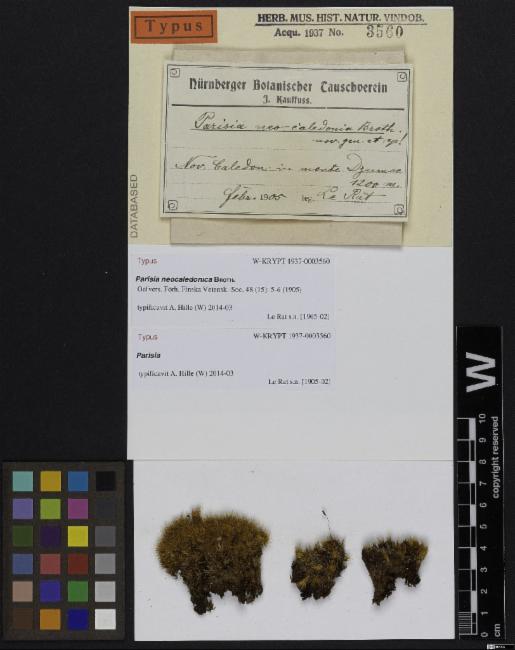 Typus
HERB. MUS. HIST. NATUR. VINDOB.
Acqu. 1937 No. 3560
Nürnberger Botanischer Tauschverein
J. Kaulfuss.
Parisia neo-caledonia Broth.
nov. gen. et sp!
Nov. Caledon. in monte Dzumac
1200 m.
febr. 1905 leg. Le Rat
DATABASED
Typus W-KRYPT 1937-0003560
Parisia neocaledonica Broth.
Oefvers. Förh. Finska Vetensk.-Soc. 48 (15): 5-6 (1905)
typificavit A. Hille (W) 2014-03
Le Rat s.n. [1905-02]
Typus W-KRYPT 1937-0003560
Parisia
typificavit A. Hille (W) 2014-03
Le Rat s.n. [1905-02]
W
copyright reserved
0 1 2 3 4 5 6 7 8 9 10
cm